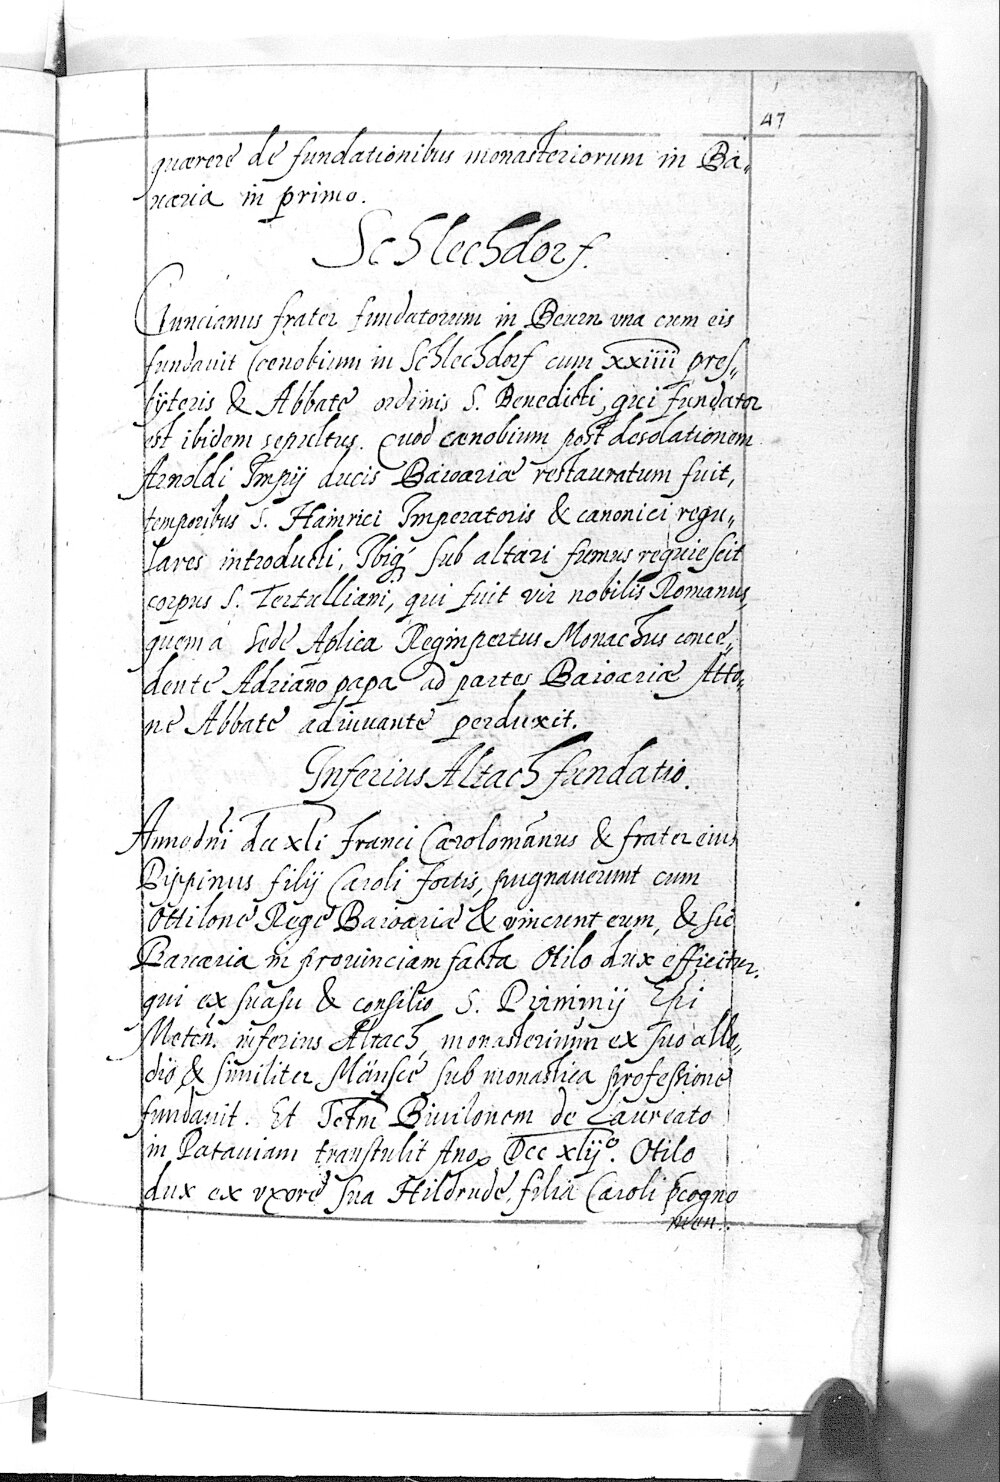 47
quærere de fundationibus monasteriorum in Ba„
uaria in primo.
Schlechdorf.
Cuncianus frater fundatorum in Beurn vna cum eis
fundauit Cœnobium in Schlechdorf cum xxiiii pres„
bÿteris & Abbate ordinis S. Benedicti, qui fundator
est ibidem sepultus. Quod cœnobium post desolationem
Arnoldi Impij ducis Baioariæ restauratum fuit,
temporibus S. Hainrici Imperatoris & canonici regu„
lares introducti, Ibiq; sub altari sumus requiescit
corpus S. Tertulliani, qui fuit vir nobilis Romanus,
quem a sede Aplica Reginpertus Monachus conce„
dente Adriano papa ad partes Baioariæ Atto„
ne Abbate adiuuante perduxit.
Inferius Altach fundatio.
Anno dni dcc xli franci Carolomanus & frater eius
Pippinus filij Caroli fortis, pugnauerunt cum
Ottilone Rege Baioariæ & vincunt eum, & sic
Bauaria in prouinciam facta Otilo dux efficitur.
qui ex suasu & consilio S. Pirminij Epi
Meteñ. inferius Altach, monasterium ex suo allo„
dio & similiter Mänsee sub monastica professione
fundauit. Et Vivilonem de Laureato
in Patauiam transtulit Ano Dcc xlijº. Otilo
dux ex vxore sua Hiltrude, filia Caroli pcogno
men..